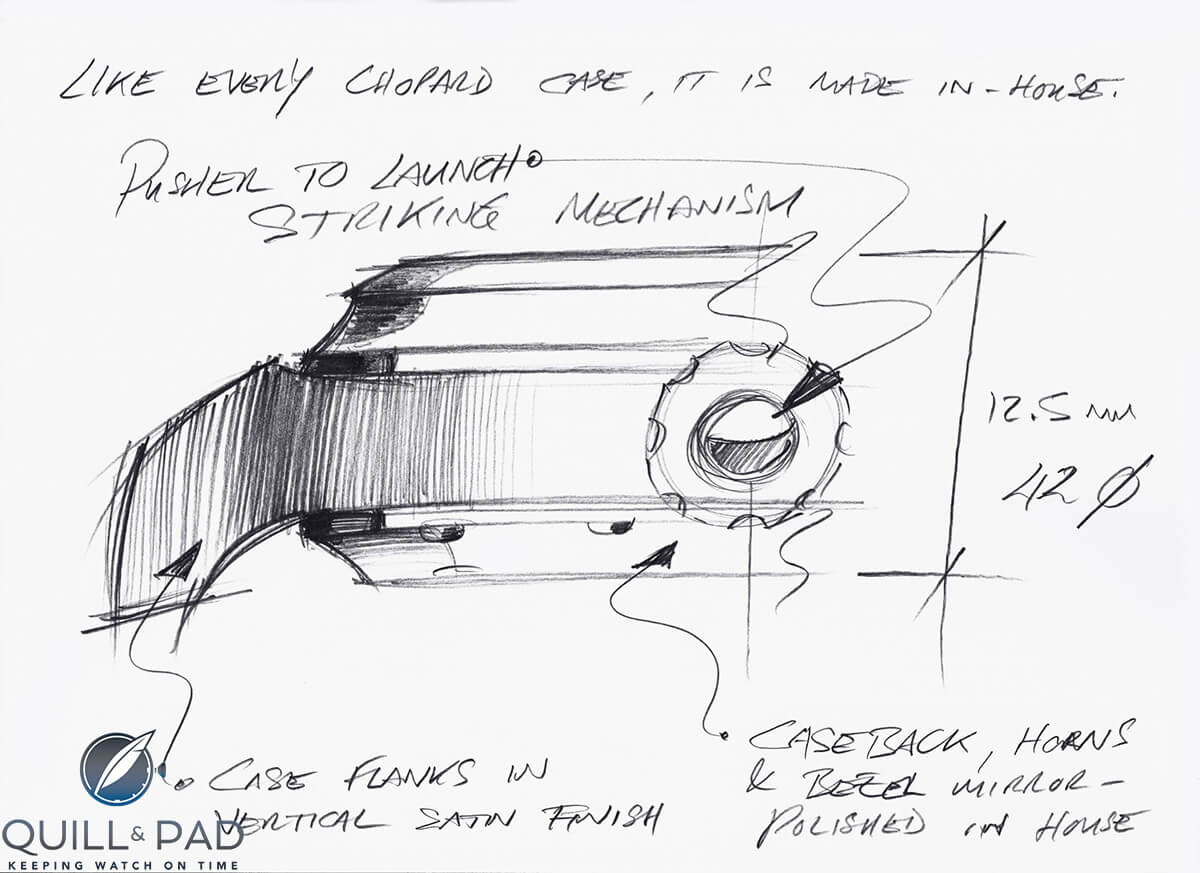 LIKE EVERY CHOPARD CASE, IT IS MADE IN-HOUSE.
PUSHER TO LAUNCH
STRIKING MECHANISM
12.5 MM
42 Ø
CASEBACK, HORNS
& BEZEL MIRROR-
POLISHED IN HOUSE
CASE FLANKS IN
VERTICAL SATIN FINISH
QUILL & PAD
KEEPING WATCH ON TIME